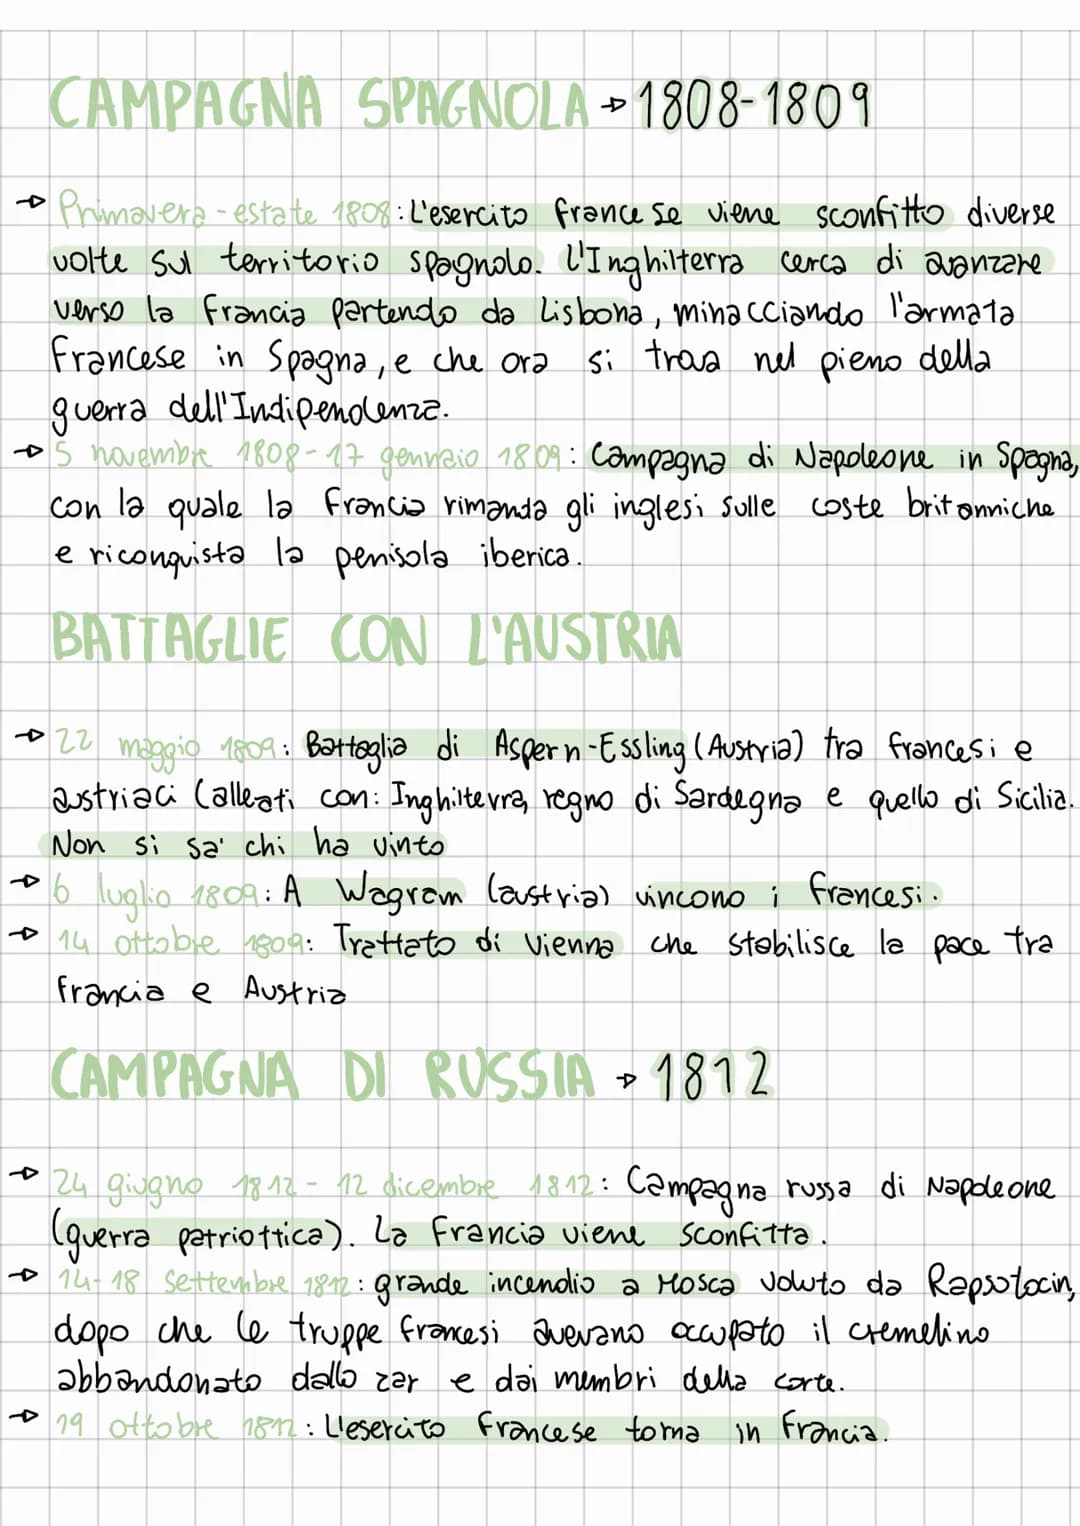 CAMPAGNA SPAGNOLA → 1808-1809
→ Primavera-estate 1808: L'esercito francese viene sconfitto diverse
volte sul territorio spagnolo. L'Inghilterra cerca di avanzare
verso la Francia partendo da Lisbona, minacciando l'armata
francese in Spagna, e che ora si trova nel pieno della
guerra dell'Indipendenza.
→ 5 novembre 1808-17 gennaio 1809: Campagna di Napoleone in Spagna,
con la quale la Francia rimanda gli inglesi sulle coste britanniche
e riconquista la penisola iberica.
BATTAGLIE CON L'AUSTRIA
→ 22 maggio 1809: Battaglia di Aspern-Essling (Austria) tra francesi e
austriaci (alleati con: Inghilterra, regno di Sardegna e quello di Sicilia.
Non si sa' chi ha vinto
→ 6 luglio 1809: A Wagram (austria) vincono i francesi.
→ 14 ottobre 1809: Trattato di Vienna che stabilisce la pace tra
Francia e Austria
CAMPAGNA DI RUSSIA → 1812
→ 24 giugno 1812 - 12 dicembre 1812: Campagna russa di Napoleone
(guerra patriottica). La Francia viene sconfitta.
→ 14-18 settembre 1812: grande incendio a Mosca voluto da Rapsotocin,
dopo che le truppe francesi avevano occupato il cremelino
abbandonato dallo zar e dai membri della corte.
→ 19 ottobre 1812: L'esercito francese torna in Francia.